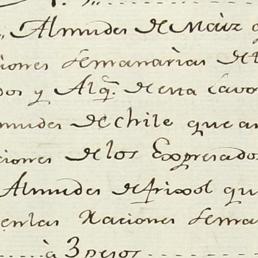 Almudes de Maiz
ciones semanarias de
dos y Alq.ʳ de esta Lavo
mudes de chile que an
ciones de los Expresados
Almudes de frixol qu
en las Raciones sema
à 3 pesos